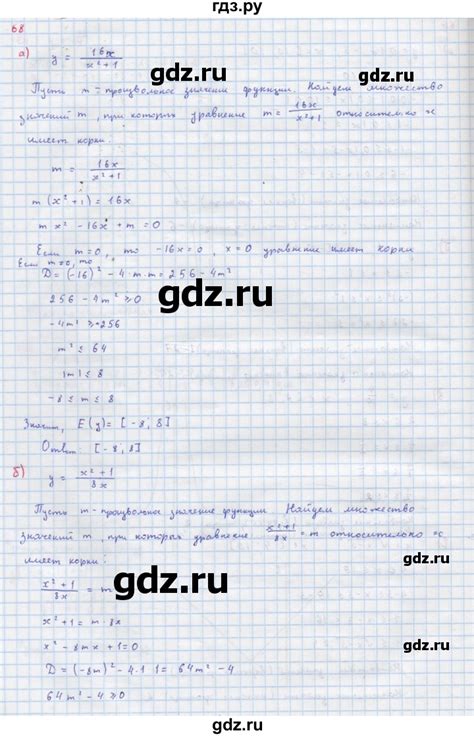 гдз.ру
68
а) y = 16x / x²+1
gdz.ru
Пусть m-произвольное значение функции. Найдем множество
значений m, при которых уравнение m = 16x / x²+1 относительно x
имеет корни.
m = 16x / x²+1
m (x² + 1) = 16x
m x² - 16x + m = 0
Если m=0, то -16x=0, x=0 уравнение имеет корни
Если m=0, то
D = (-16)² - 4·m·m = 256 - 4m²
256 - 4m² ≥ 0
gdz.ru
-4m² ≥ -256
m² ≤ 64
|m| ≤ 8
-8 ≤ m ≤ 8
Значит, E(y) = [-8; 8]
Ответ: [-8; 8]
gdz.ru
б) y = x²+1 / 8x
Пусть m-произвольное значение функции Найдем множество
значений m, при которых уравнение x²+1 / 8x = m относительно x
имеет корни:
gdz.ru
x²+1 / 8x = m
gdz.ru
x²+1 = m·8x
x² - 8mx + 1 = 0
D = (-8m)² - 4·1·1 = 64m² - 4
64m² - 4 ≥ 0
gdz.ru
gdz.ru